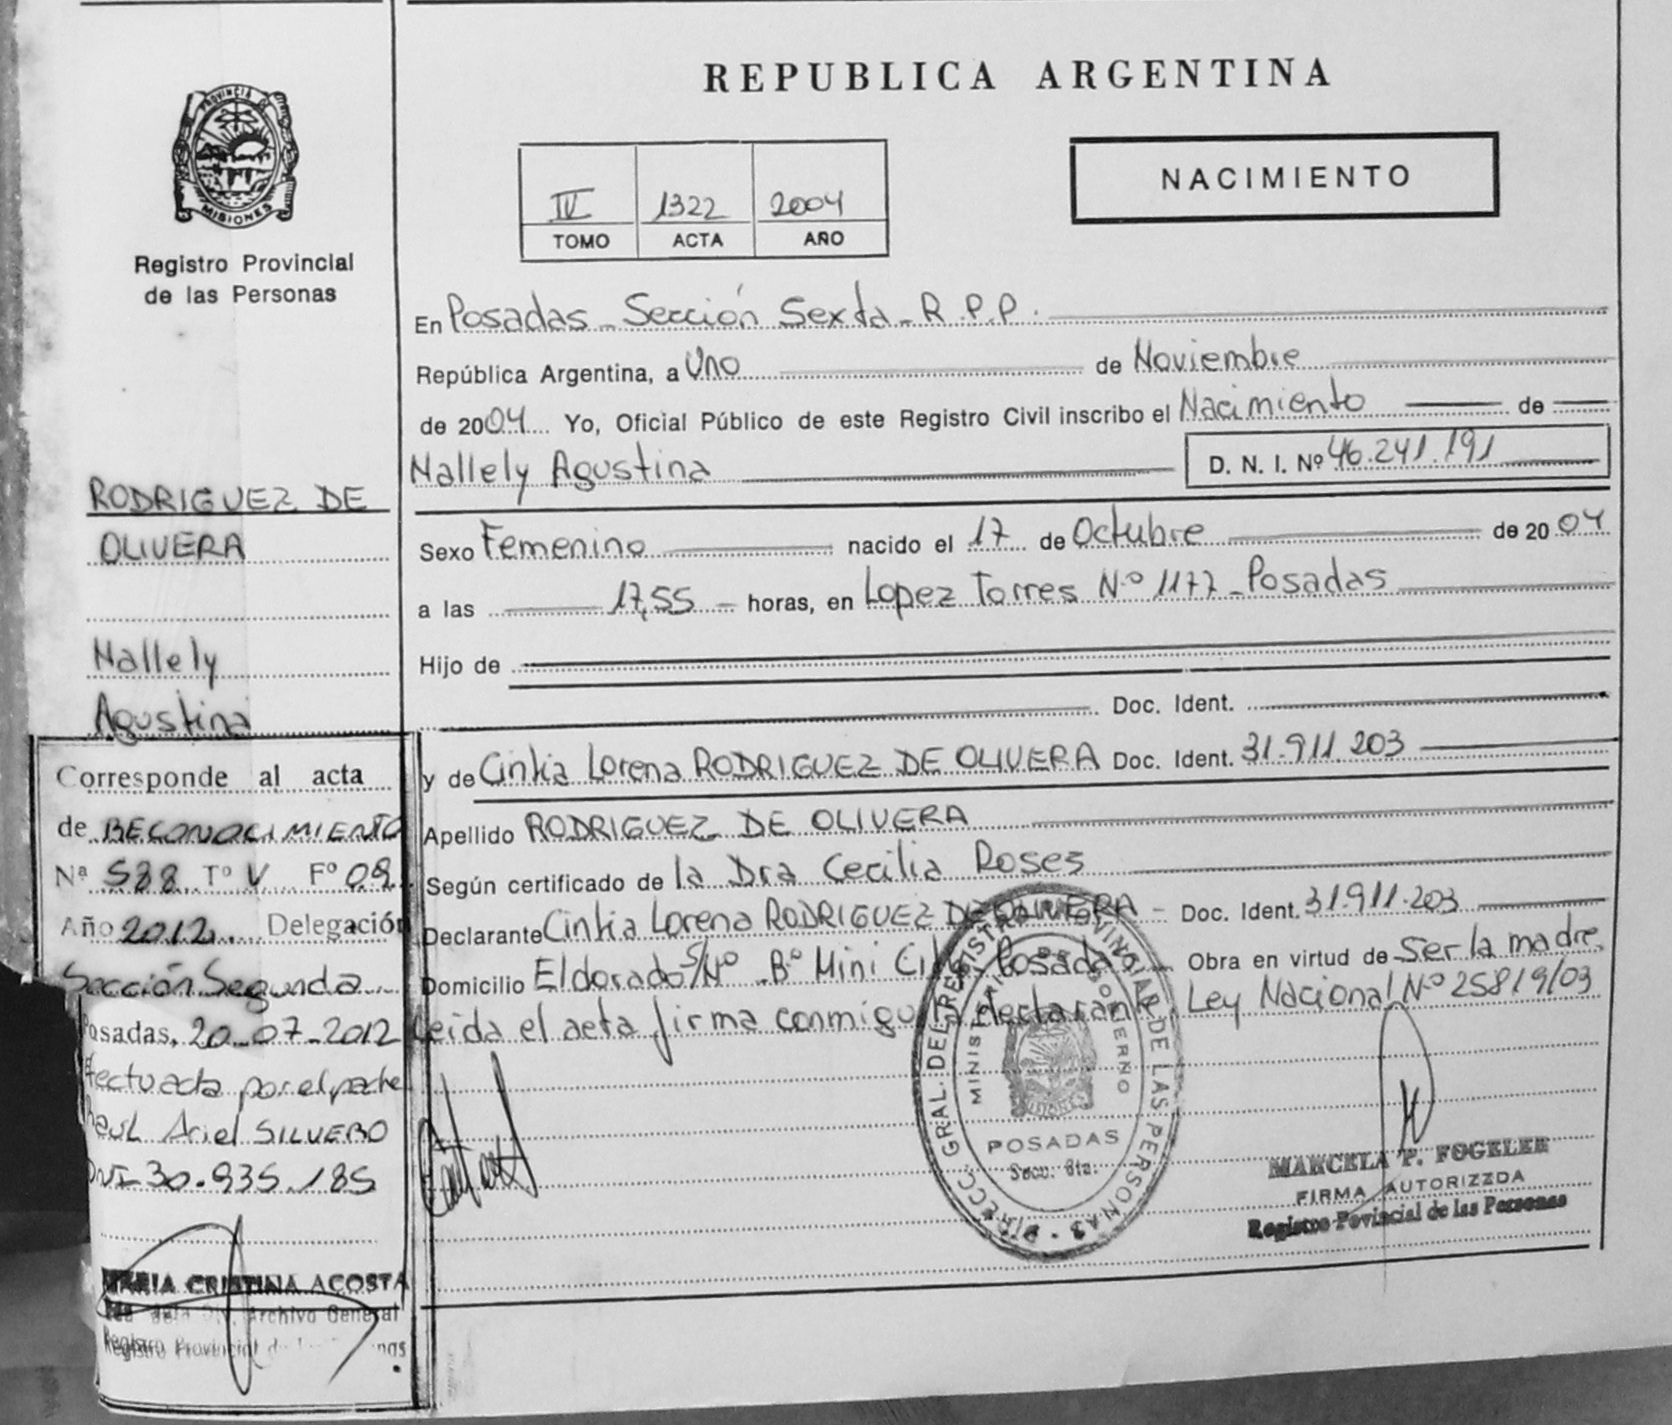 REPUBLICA ARGENTINA
PROVINCIA DE
MISIONES
Registro Provincial
de las Personas
IV 1322 2004
TOMO ACTA AÑO
NACIMIENTO
En Posadas - Sección Sexta - R.P.P.
República Argentina, a Uno de Noviembre
de 2004 Yo, Oficial Público de este Registro Civil inscribo el Nacimiento de
Nallely Agustina D. N. I. Nº 46.241.191
Sexo Femenino nacido el 17 de Octubre de 2004
a las 17,55 horas, en Lopez Torres Nº 1177 - Posadas
Hijo de
Doc. Ident.
y de Cintia Lorena RODRIGUEZ DE OLIVERA Doc. Ident. 31.911.203
Apellido RODRIGUEZ DE OLIVERA
Según certificado de la Dra Cecilia Roses
Declarante Cintia Lorena RODRIGUEZ DE OLIVERA - Doc. Ident. 31.911.203
Domicilio Eldorado S/Nº Bº Mini City Posadas Obra en virtud de Ser la madre
Leida el acta firma conmigo la declarante Ley Nacional Nº 25819/03
RODRIGUEZ DE
OLIVERA
Nallely
Agustina
Corresponde al acta
de RECONOCIMIENTO
Nª 588 Tº V Fº 09
Año 2012 Delegación
Sección Segunda
Posadas, 20-07-2012
por el padre
Raul Ariel SILVERO
DNI-30.935.185
MARIA CRISTINA ACOSTA
Archivo General
Registro Provincial
DIRECC. GRAL. DEL REGISTRO PROVINCIAL DE LAS PERSONAS
MINISTERIO DE GOBIERNO
POSADAS
Secc. 6ta.
MARCELA P. FOGELER
FIRMA AUTORIZZDA
Registro Povincial de las Personas